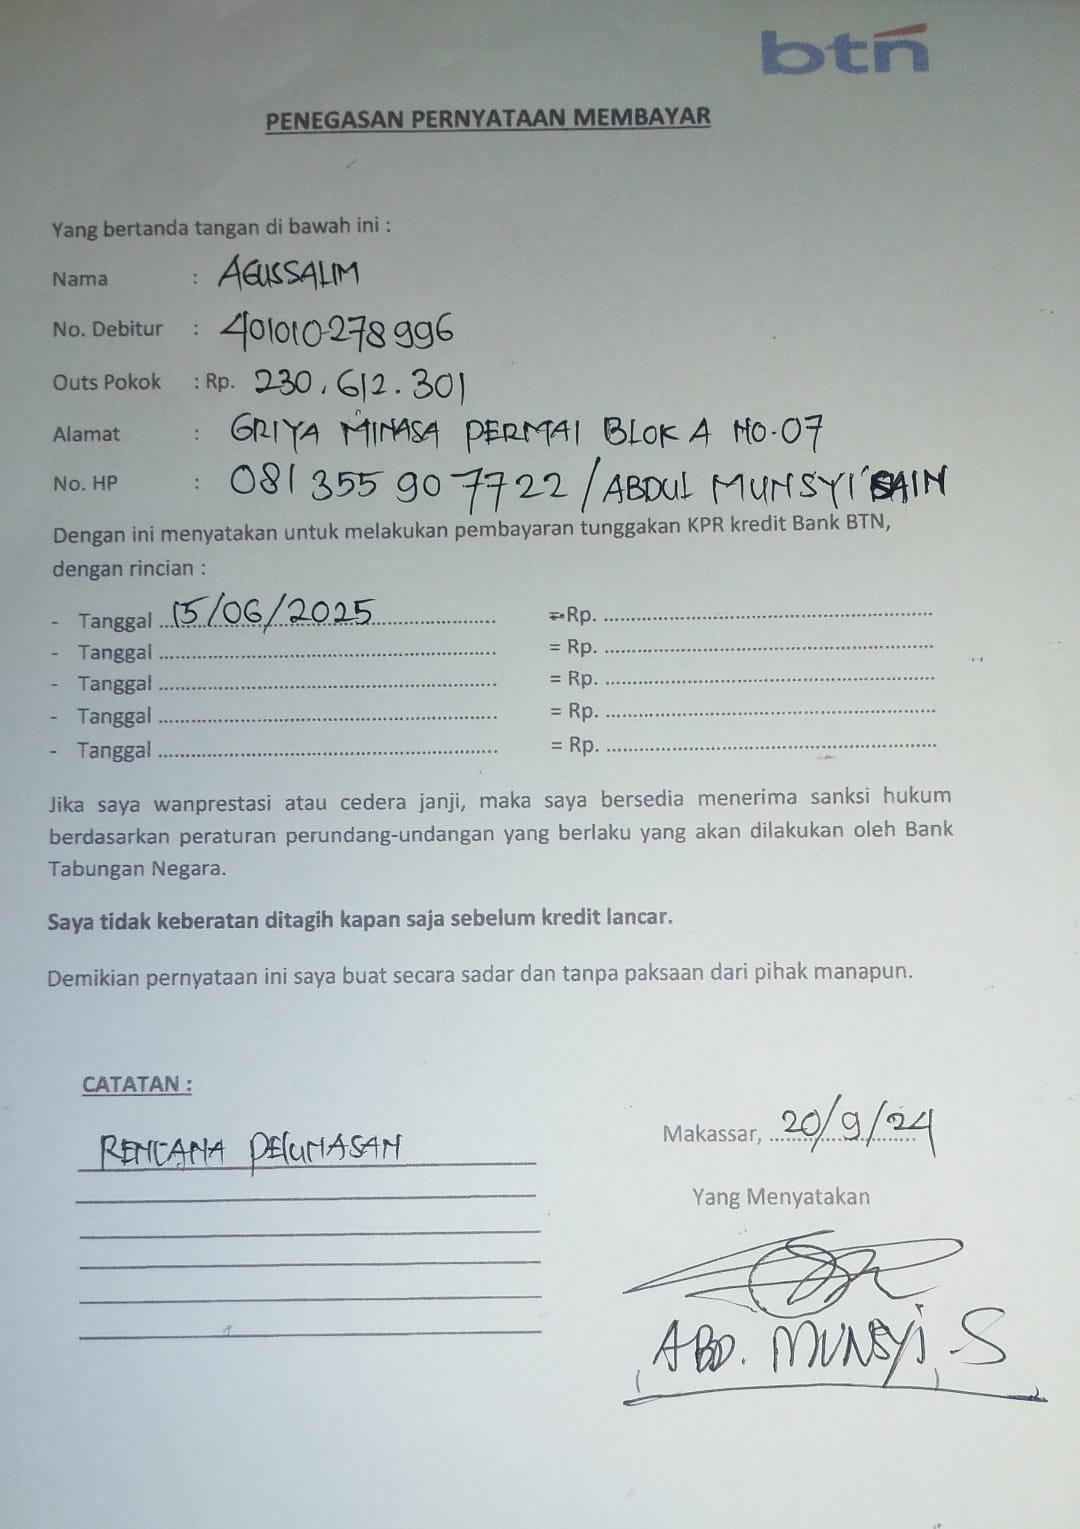 btn
PENEGASAN PERNYATAAN MEMBAYAR
Yang bertanda tangan di bawah ini :
Nama : AGUSSALIM
No. Debitur : 401010278996
Outs Pokok : Rp. 230.612.301
Alamat : GRIYA MINASA PERMAI BLOK A NO.07
No. HP : 081 355 907722 / ABDUL MUNSYI SAIN
Dengan ini menyatakan untuk melakukan pembayaran tunggakan KPR kredit Bank BTN,
dengan rincian :
- Tanggal 15/06/2025 = Rp. ....................
- Tanggal .................... = Rp. ....................
- Tanggal .................... = Rp. ....................
- Tanggal .................... = Rp. ....................
- Tanggal .................... = Rp. ....................
Jika saya wanprestasi atau cedera janji, maka saya bersedia menerima sanksi hukum
berdasarkan peraturan perundang-undangan yang berlaku yang akan dilakukan oleh Bank
Tabungan Negara.
Saya tidak keberatan ditagih kapan saja sebelum kredit lancar.
Demikian pernyataan ini saya buat secara sadar dan tanpa paksaan dari pihak manapun.
CATATAN :
RENCANA PELUNASAN
Makassar, 20/9/24
Yang Menyatakan
ABD. MUNSYI S